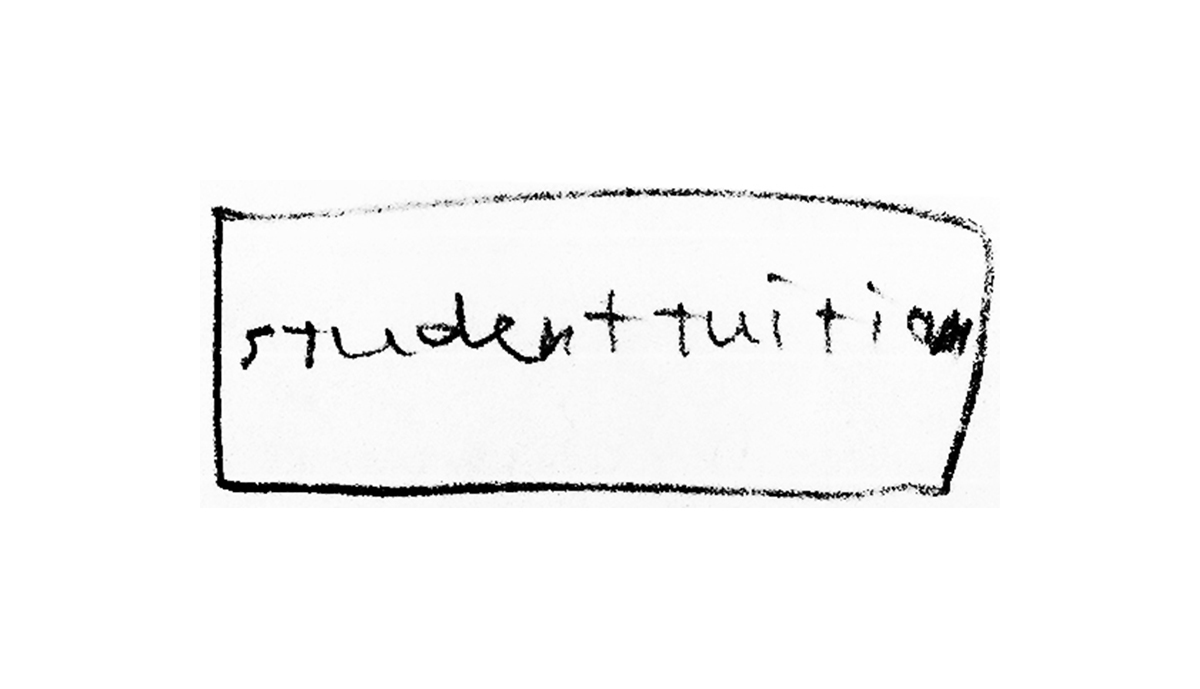 student tuition